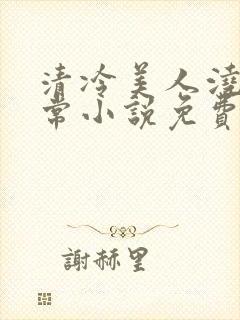 清冷美人澆
常小說免費
謝赫里